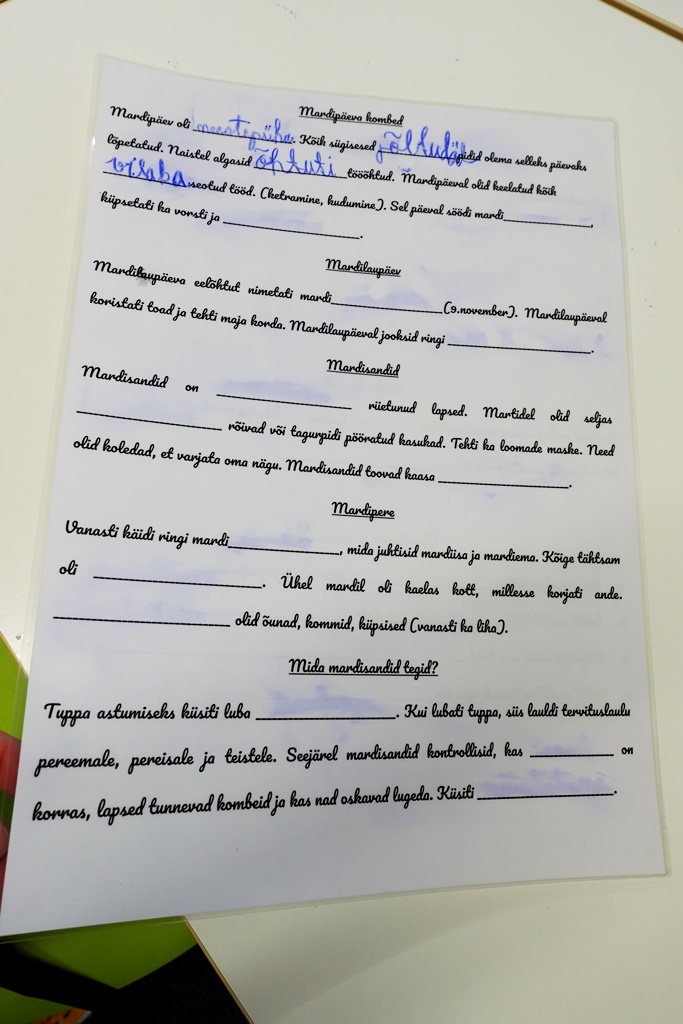 Mardipäeva kombed
Mardipäev oli meestepüha. Kõik sügisesed põllutööd pidid olema selleks päevaks
lõpetatud. Naistel algasid õhtuti tööõhtud. Mardipäeval olid keelatud kõik
villaga seotud tööd. (ketramine, kudumine). Sel päeval söödi mardi____________,
küpsetati ka vorsti ja ____________.
Mardilaupäev
Mardilaupäeva eelõhtut nimetati mardi____________(9.november). Mardilaupäeval
koristati toad ja tehti maja korda. Mardilaupäeval jooksid ringi ____________.
Mardisandid
Mardisandid on ____________ riietunud lapsed. Martidel olid seljas
____________ rõivad või tagurpidi pööratud kasukad. Tehti ka loomade maske. Need
olid koledad, et varjata oma nägu. Mardisandid toovad kaasa ____________.
Mardipere
Vanasti käidi ringi mardi____________, mida juhtisid mardiisa ja mardiema. Kõige tähtsam
oli ____________. Ühel mardil oli kaelas kott, millesse korjati ande.
____________ olid õunad, kommid, küpsised (vanasti ka liha).
Mida mardisandid tegid?
Tuppa astumiseks küsiti luba ____________. Kui lubati tuppa, siis lauldi tervituslaulu
pereemale, pereisale ja teistele. Seejärel mardisandid kontrollisid, kas ____________ on
korras, lapsed tunnevad kombeid ja kas nad oskavad lugeda. Küsiti ____________.